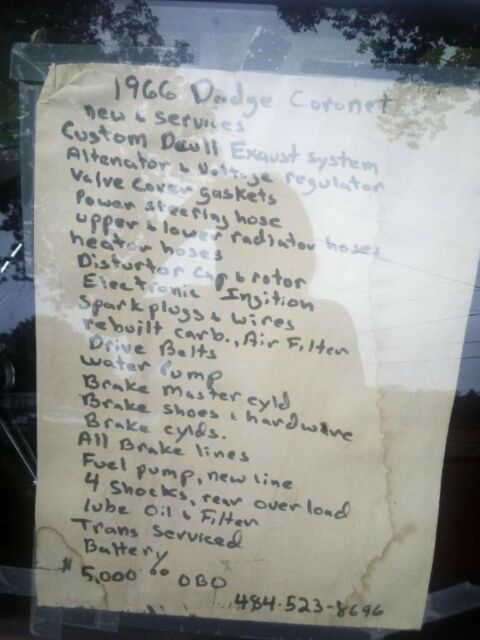 1966 Dodge Coronet
new & services
Custom Duell Exaust system
Altenator & Voltage regulator
Valve cover gaskets
Power steering hose
upper & lower radiator hoses
heator hoses
Disturtor Cap & rotor
Electronic Ingition
Spark plugs & wires
rebuilt carb., Air Filter
Drive Belts
water Pump
Brake Master cyld
Brake shoes & hardware
Brake cylds.
All Brake lines
Fuel pump, new line
4 Shocks, rear over load
lube Oil & Filter
Trans Serviced
Battery
$5,000.00 OBO
484-523-8696